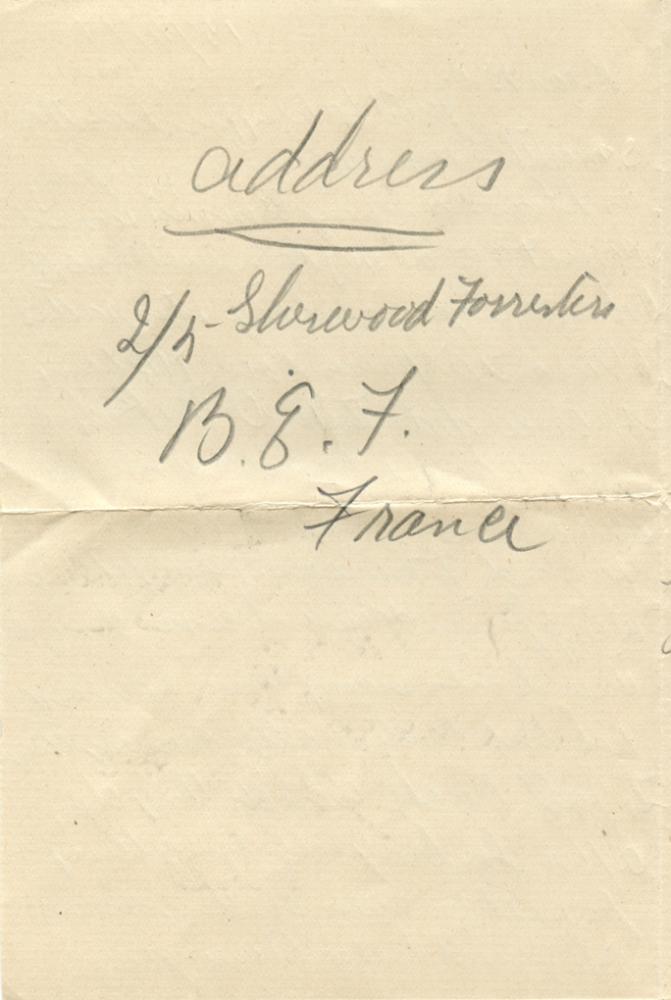 address
2/5 Sherwood Forresters
B.E.F.
France